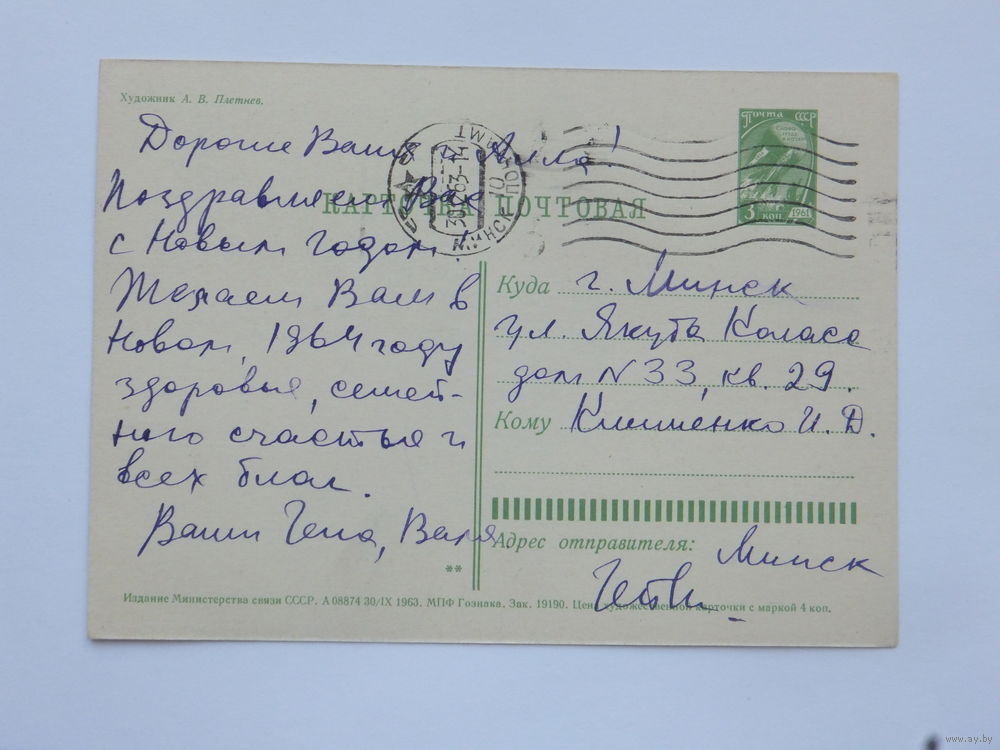 Художник А. В. Плетнев.
Дорогие Ваня, Алла!
Поздравляем Вас
с Новым годом!
Желаем Вам в
Новом, 1964 году
здоровья, семей-
ного счастья и
всех благ.
Ваши Гена, Валя
**
КАРТОЧКА ПОЧТОВАЯ
МИНСК
Почта СССР
3 коп
1961
Куда г. Минск
ул. Якуба Коласа
дом N 33, кв. 29.
Кому Клименко И. Д.
Адрес отправителя: Минск
Издание Министерства связи СССР. А 08874 30/IX 1963. МПФ Гознака. Зак. 19190. Цена художественной карточки с маркой 4 коп.
www.ay.by